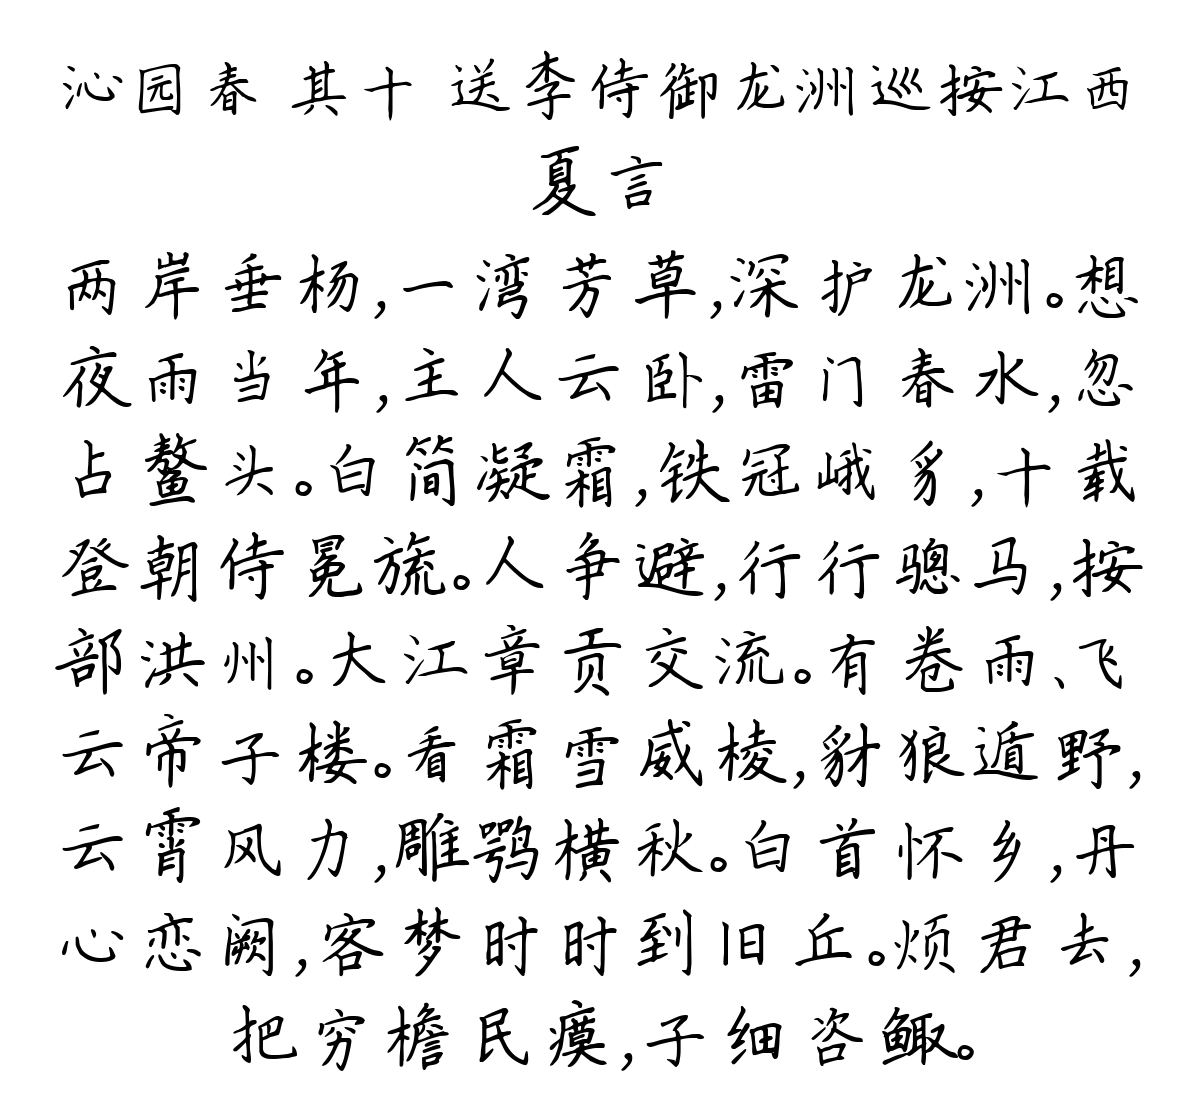 沁园春 其十 送李侍御龙洲巡按江西
夏言
两岸垂杨,一湾芳草,深护龙洲。想
夜雨当年,主人云卧,雷门春水,忽
占鳌头。白简凝霜,铁冠峨豸,十载
登朝侍冕旒。人争避,行行骢马,按
部洪州。大江章贡交流。有卷雨、飞
云帝子楼。看霜雪威棱,豺狼遁野,
云霄风力,雕鹗横秋。白首怀乡,丹
心恋阙,客梦时时到旧丘。烦君去,
把穷檐民瘼,子细咨鲰。